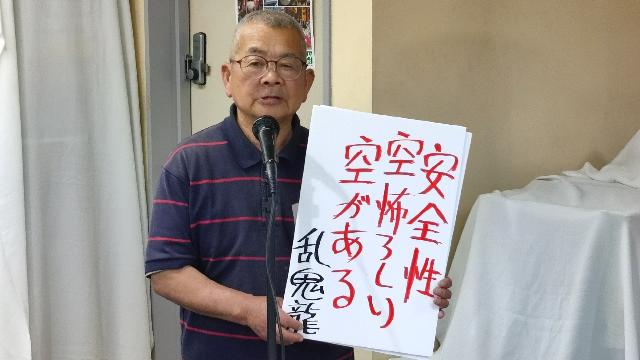 安全性
空怖ろしい
空がある
乱鬼龍